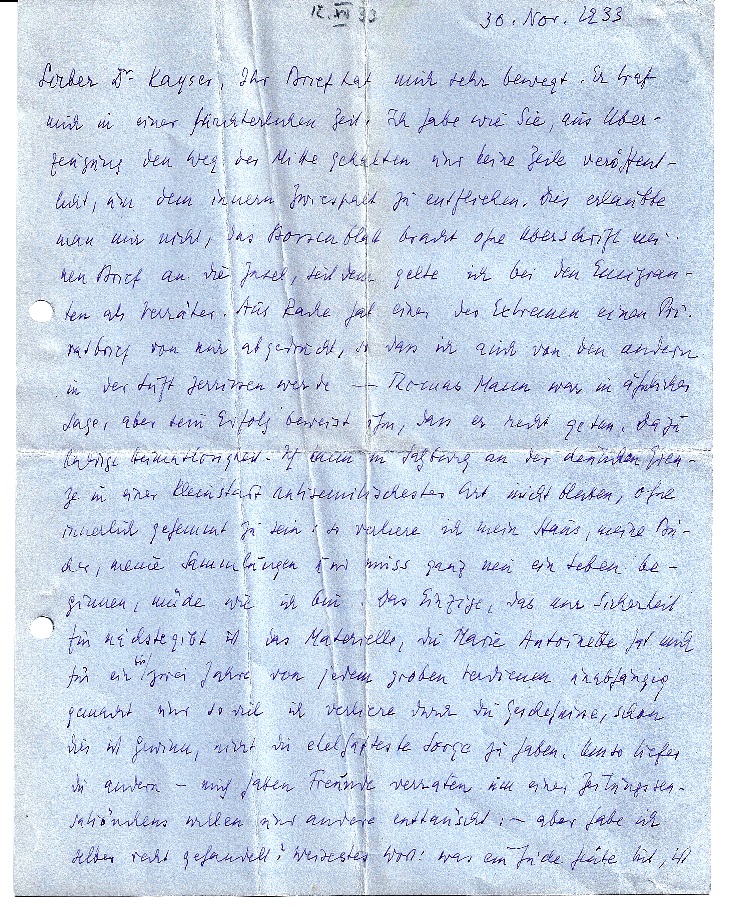 12. XII 33
30. Nov. 1933
Lieber Dr Kayser, Ihr Brief hat mich sehr bewegt. Er traf
mich in einer fürchterlichen Zeit. Ich habe wie Sie, aus Über-
zeugung den Weg der Mitte gehalten und keine Zeile veröffent-
licht, um dem innern Zwiespalt zu entfliehen. Dies erlaubte
man mir nicht, das Börsenblatt bracht ohne Überschrift mei-
nen Brief an die Insel, seitdem gelte ich bei den Emigran-
ten als Verräter. Aus Rache hat einer der Extremen einen Pri-
vatbrief von mir abgedruckt, so dass ich auch von den andern
in der Luft zerrissen werde — Thomas Mann war in ähnlicher
Lage, aber sein Erfolg beweist ihm, dass er recht getan. Dazu
Heimatlosigkeit. Ich kann in Salzburg an der deutschen Gren-
ze in einer Kleinstadt antisemitischester Art nicht bleiben, ohne
innerlich gehemmt zu sein: so verliere ich mein Haus, meine Bü-
cher, meine Sammlungen und muss ganz neu ein Leben be-
ginnen, müde wie ich bin. Das Einzige, das mir Sicherheit
für nächste gibt ist das Materielle, die Marie Antoinette hat mich
für ein bis zwei Jahre von jedem groben Verdienen unabhängig
gemacht und so viel ich verliere durch die Geschehnisse, schon
dies ist Gewinn, nicht die ekelhafteste Sorge zu haben. Umso tiefer
die andern — mich haben Freunde verraten um eines Zeitungssen-
satiönchens willen und andere enttäuscht: — aber habe ich
selber recht gehandelt? Weisestes Wort: was ein Jude heute tut, ist